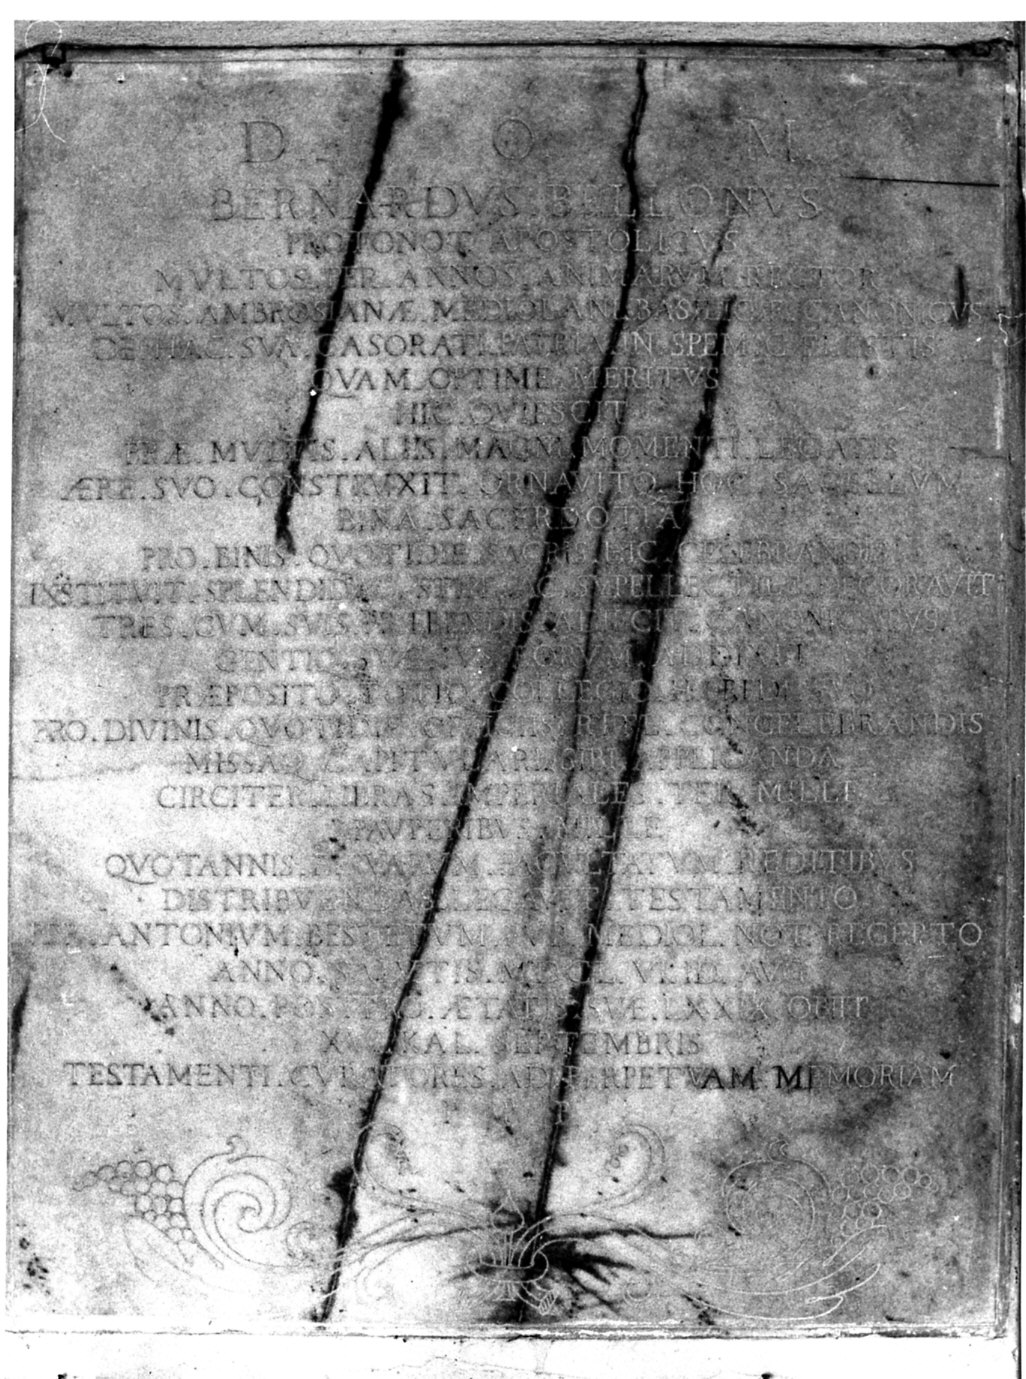 D. O. M.
BERNARDVS. BILLONVS
PROTONOT. APOSTOLICVS
MVLTOS. PER. ANNOS. ANIMARVM. RECTOR
MVLTOS. AMBROSIANÆ. MEDIOLANI. BASILICÆ. CANONICVS
DE. HAC. SVA. CASORATI. PATRIA. IN. SPEM
QVAM. OPTIME. MERITVS
HIC. QVIESCIT
PRÆ. MVLTIS. ALIIS. MAGNI. MOMENTI. LEGATIS
ÆRE. SVO. CONSTRVXIT. ORNAVITQ. HOC. SACELLVM
BINA. SACERDOTIA
PRO. BINIS. QVOTIDIE. SACRIS. HIC. CELEBRANDIS
INSTITVIT. SPLENDIDAQ. SVPELLECTILI. DECORAVIT
TRES. CVM. SVIS. CANONICATVS
ADDIDIT
PRÆPOSITO. TOTIQ. COLLEGIO. HÆREDI. SVO
PRO. DIVINIS. QVOTIDIE. OFFICIIS. RITE. CONCELEBRANDIS
MISSAQ. CAPITVLARI. SIBI. APPLICANDA
CIRCITER. LIBRAS. IMPERIALES. TER. MILLE
PAVPERIBVS. MILLE
QVOTANNIS. EX. SVARVM. FACVLTATVM. REDITIBVS
DISTRIBVENDAS. LEGAVIT. TESTAMENTO
PER. ANTONIVM. MEDIOL. NOT. RECEPTO
ANNO. SALVTIS. VI. ID.
ANNO. POST. ÆTATIS. SVÆ. LXXIX. OBIIT
KAL. SEPTEMBRIS
TESTAMENTI. CVRATORES. AD. PERPETVAM. MEMORIAM